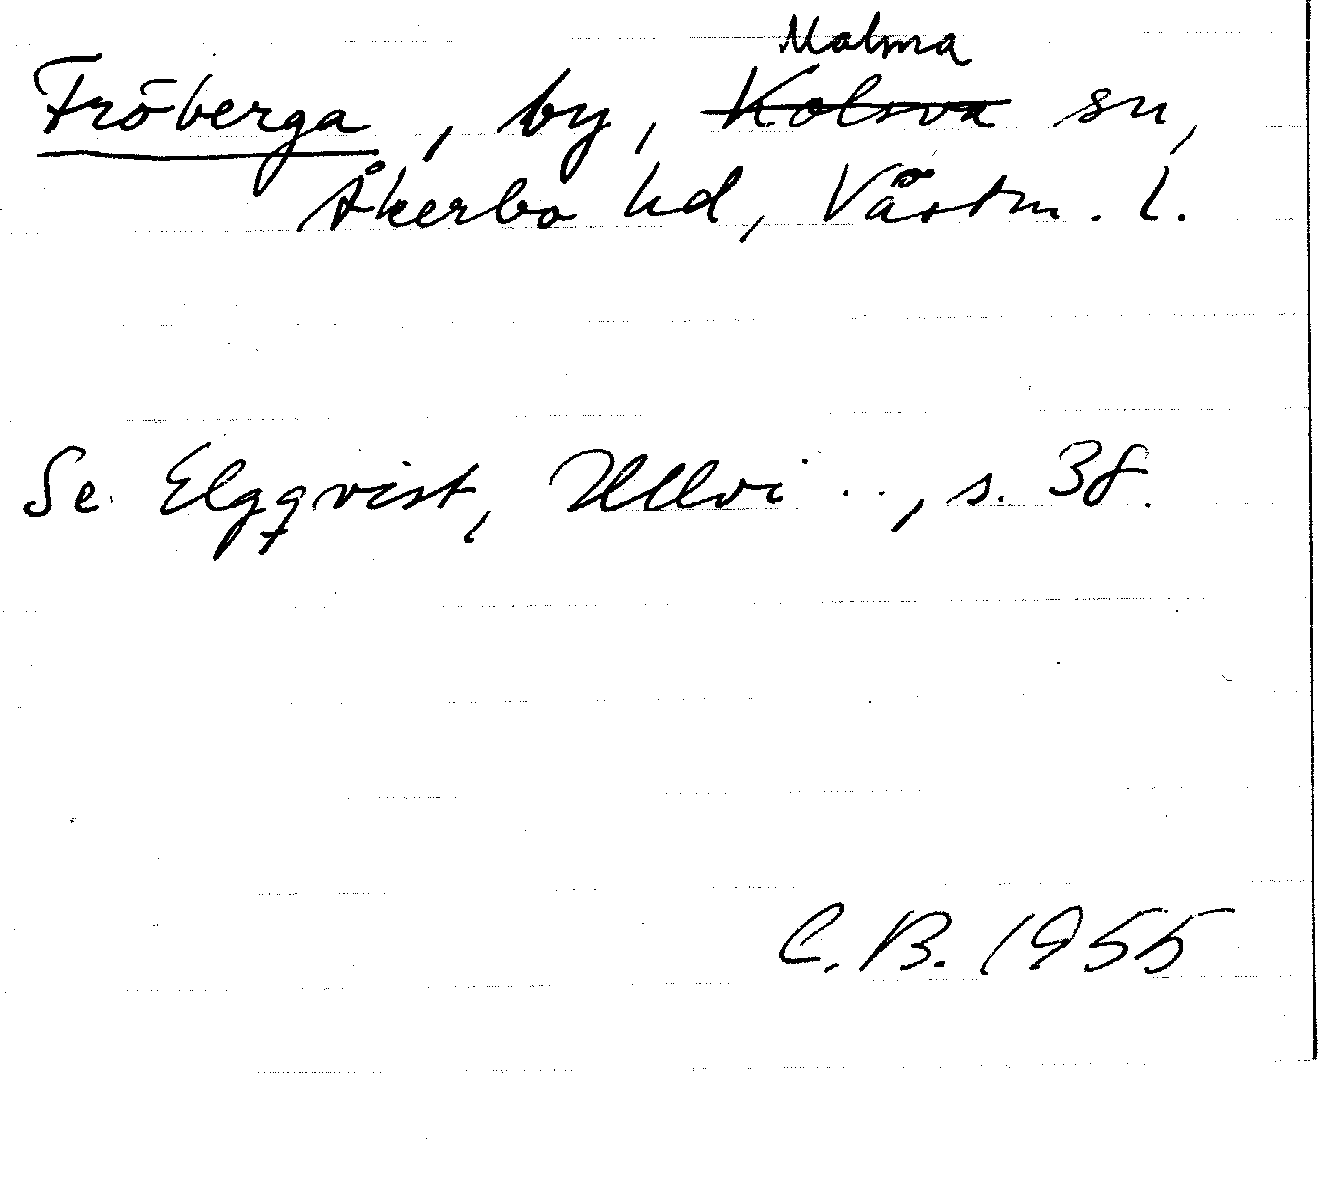 Malma
Fröberga, by, Kolsva sn,
Åkerbo hd, Västm. l.
Se Elgqvist, Ullvi .., s. 38.
C. B. 1955